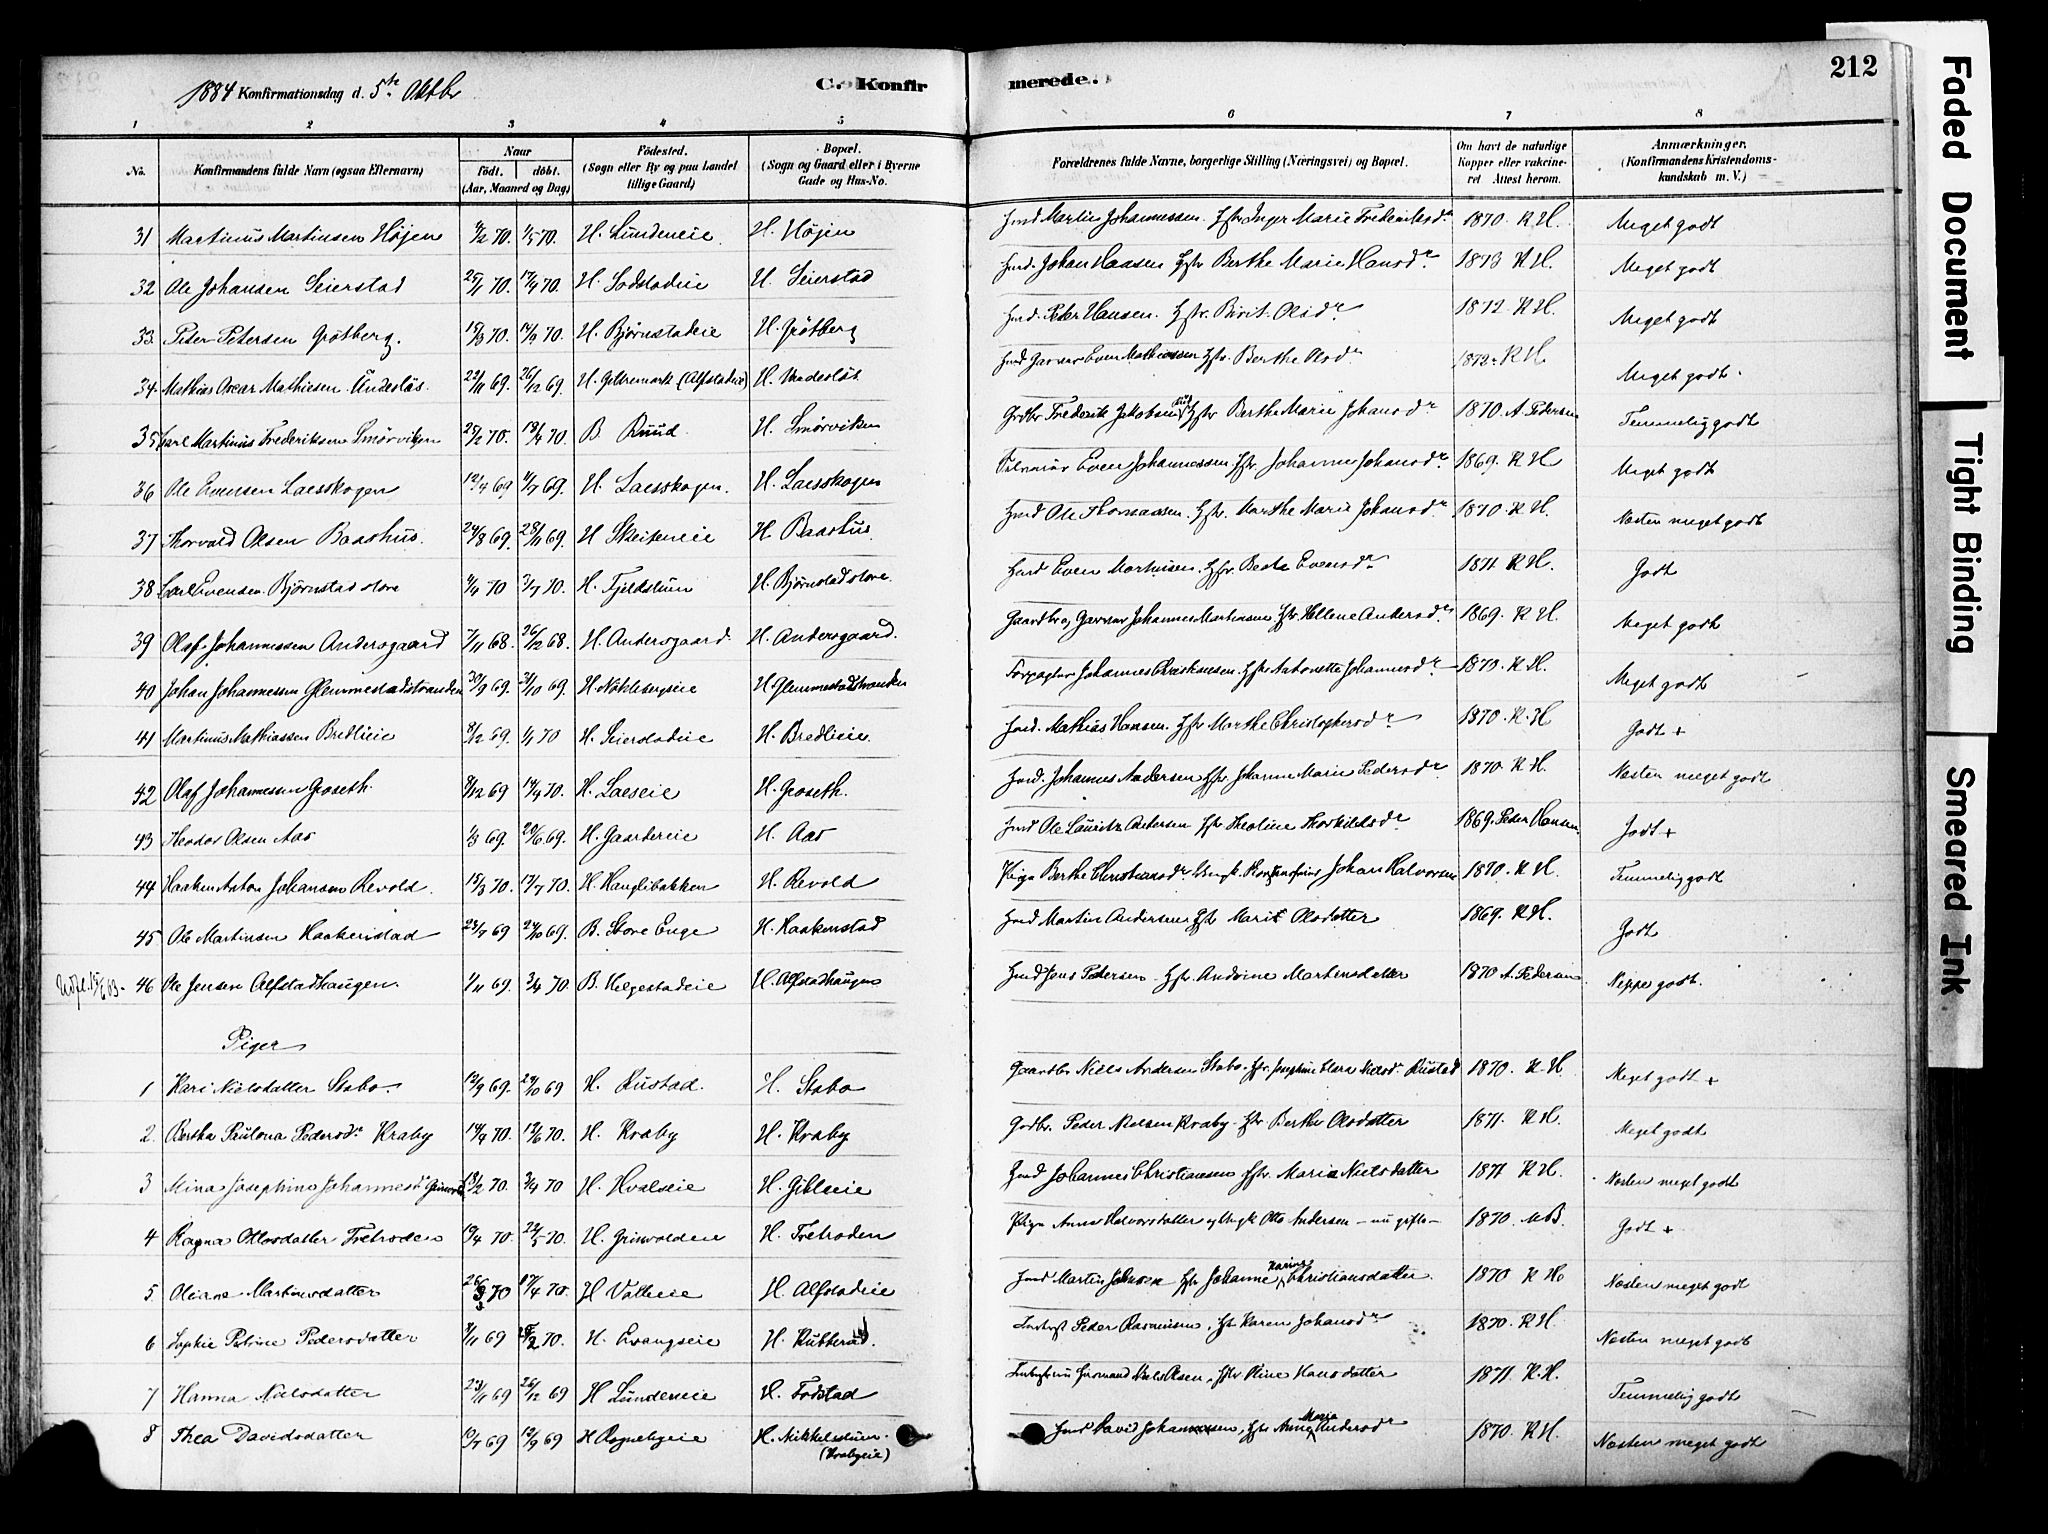 212
1884 Konfirmationsdag d. 5te Oktbr
C. Konfirmerede.
1 2 3 4 5 6 7 8
No. Konfirmandens fulde Navn (ogsaa Efternavn) Naar födt. döbt. (Aar, Maaned og Dag) Födested. (Sogn eller By og paa Landet tillige Gaard) Bopæl. (Sogn og Gaard eller i Byerne Gade og Hus-No. Forældrenes fulde Navne, borgerlige Stilling (Næringsvei) og Bopæl. Om havt de naturlige Kopper eller vakcineret Attest herom. Anmærkninger. (Konfirmandens Kristendomskundskab m. V.)
31 Martinus Martinsen Höjen 70. 1/5 70. H. Lundeneie H. Höjen Martin Johannessen. Hstr. Inger Marie Frederiksdr 1870. R H. Meget godt
32 Ole Johansen Seierstad 25/1 70. 17/4 70. H. Sodstadeie H. Seierstad Ind. Johan Hansen Hstr Berthe Marie Hansdr 1873 R H. Meget godt
33 Peter Petersen Grötberg. 15/3 70. H. Bjørnstadeie H. Grötberg Ind. Peder Hansen. Hstr. Birit Olsdr 1872. R H. Meget godt
34 Mathias Oscar Mathiesen 22/11 69. 26/12 69. H. (Alfstadeie) H. Ind Garver Even Mathiassen Hstr. Berthe Olsdr 1872. R H Meget godt.
35 Carl Martinus Frederiksen Smörviken 25/2 70. 18/4 70. B. Ruud H. Smörviken Grdbr Frederik Jakobsen Hstr Berthe Marie Johansdr 1870. A. Pedersen Temmelig godt
36 Ole Evensen Laesskogen 12/4 69 4/7 69. H. Laesskogen. H. Laesskogen Even Johannessen Hstr. Johanne Johansdr 1869. R H Meget godt
37 Thorvald Olsen Baashus. 24/8 69. 28/11 69. H Skeikneie H. Baashus. Ind Ole Thomassen. Hstr. Marthe Marie Johansdr 1870. R H. Næsten meget godt
38 Carl Evensen Bjørnstad store 4/4 70 3/7 70. H. Fjeldstuen H. Bjørnstad store. Ind Even Martinsen. Hstr. Beate Evensdr 1871. R H. Godt
39 Olaf Johannessen Andersgaard 7/11 68. 26/12 68. H. Andersgaard H. Andersgaard. Gaardbr. og Garver Johannes Martinsen Hstr. Hellene Andersdr 1869. R H. Meget godt
40 Johan Johannessen Glemmestadstranden 30/9 69. 31/10 69. H. Nöklebyeie H. Glemmestadstranden Forpagter Johannes Christiansen. Hstr Antonette Johannesdr 1870. R H. Meget godt
41 Martinus Mathiassen Bredlieie 8/12 69. 1/1 70 H. Seierstadeie H. Bredlieie. Ind. Mathias Hansen. Hstr Marthe Christophersdr 1870. R. H Godt +
42 Olaf Johannessen Groseth. 8/12 69 17/4 70. H. Laeseie H. Groseth. Ind. Johannes Andersen Hstr. Johanne Marie Pedersdr 1870. R H. Næsten meget godt
43 Theodor Olsen Aas 1/3 69. 20/6 69. H. Gaardereie H. Aas Ind Ole Lauritz Andersen Hstr Theoline Thorkildsdr 1869. Peder Hansen Godt +
44 Haaken Anton Johansen Revold. 15/3 70. 17/7 70. H. Hauglibakken H. Revold Pige Berthe Christiansdr Johan Halvorsen 1870. R H. Temmelig godt
45 Ole Martinsen Haakenstad 23/7 69 24/10 69. B. Store Enge H. Haakenstad Ind Martin Andersen Hstr Marit Olsdatter 1869. R H. Godt
46 Ole Jensen Alfstadhaugen. 1/11 69. 3/4 70. B. Helgestadeie H. Alfstadhaugen Ind Jens Pedersen. Hstr. Andrine Martensdatter 1870 A. Pedersen Neppe godt.
Piger
1 Kari Nielsdatter Stabo. 12/9 69. 24/10 69 H. Rustad. H. Stabo Gaardbr Niels Andersen Stabo. Hstr. Josephine Clara Nielsdr Rustad 1870. R. H. Meget godt +
2. Bertha Paulona Pedersdr Kraby 14/4 70. 12/6 70. H. Kraby H. Kraby Grdbr. Peder Nielsen Kraby. Hstr Berthe Olsdatter 1871. R H. Meget godt
3 Mina Josephine Johannesd 18/2 70. 3/4 70 H. Hvalseie H. Gihleeie Ind Johannes Christiansen Hstr. Maria Nielsdatter 1871 R H. Næsten meget godt
4 Ragna Ottosdatter Tretroden 10/4 70. 22/5 70. H. Grinvoldeie H. Tretroden Pige Anne Halvorsdatter og Ungk Otto Andersen - nu gifte - 1870. MB. Godt +
5. Oliane Martinusdatter 26/3 70 17/4 70. H Valleeie H. Alfstadeie Ind Martin Johnsen Hstr Johanne Karine Christiansdatter. 1870 R H. Næsten meget godt
6 Sophie Petrine Pedersdatter 69 70. H. Evangseie H. Kubberud. Peder Rasmussen, Hstr Karen Johansdr 1870. R H. Næsten meget godt
7 Hanna Nielsdatter 23/11 69 26/12 69 H Lundeneie H. Fodstad Niels Olsen, Hstr. Stine Hansdatter 1871. R. H. Temmelig godt
8 Thea Davidsdatter 10/7 69 12/9 69 H Rognebyeie H. Mikkelstuen. (Krabyeie) Ind David Johannessen, Hstr Anne Maria Andersdr 1870. R H. Næsten meget godt
Faded Document
Tight Binding
Smeared Ink